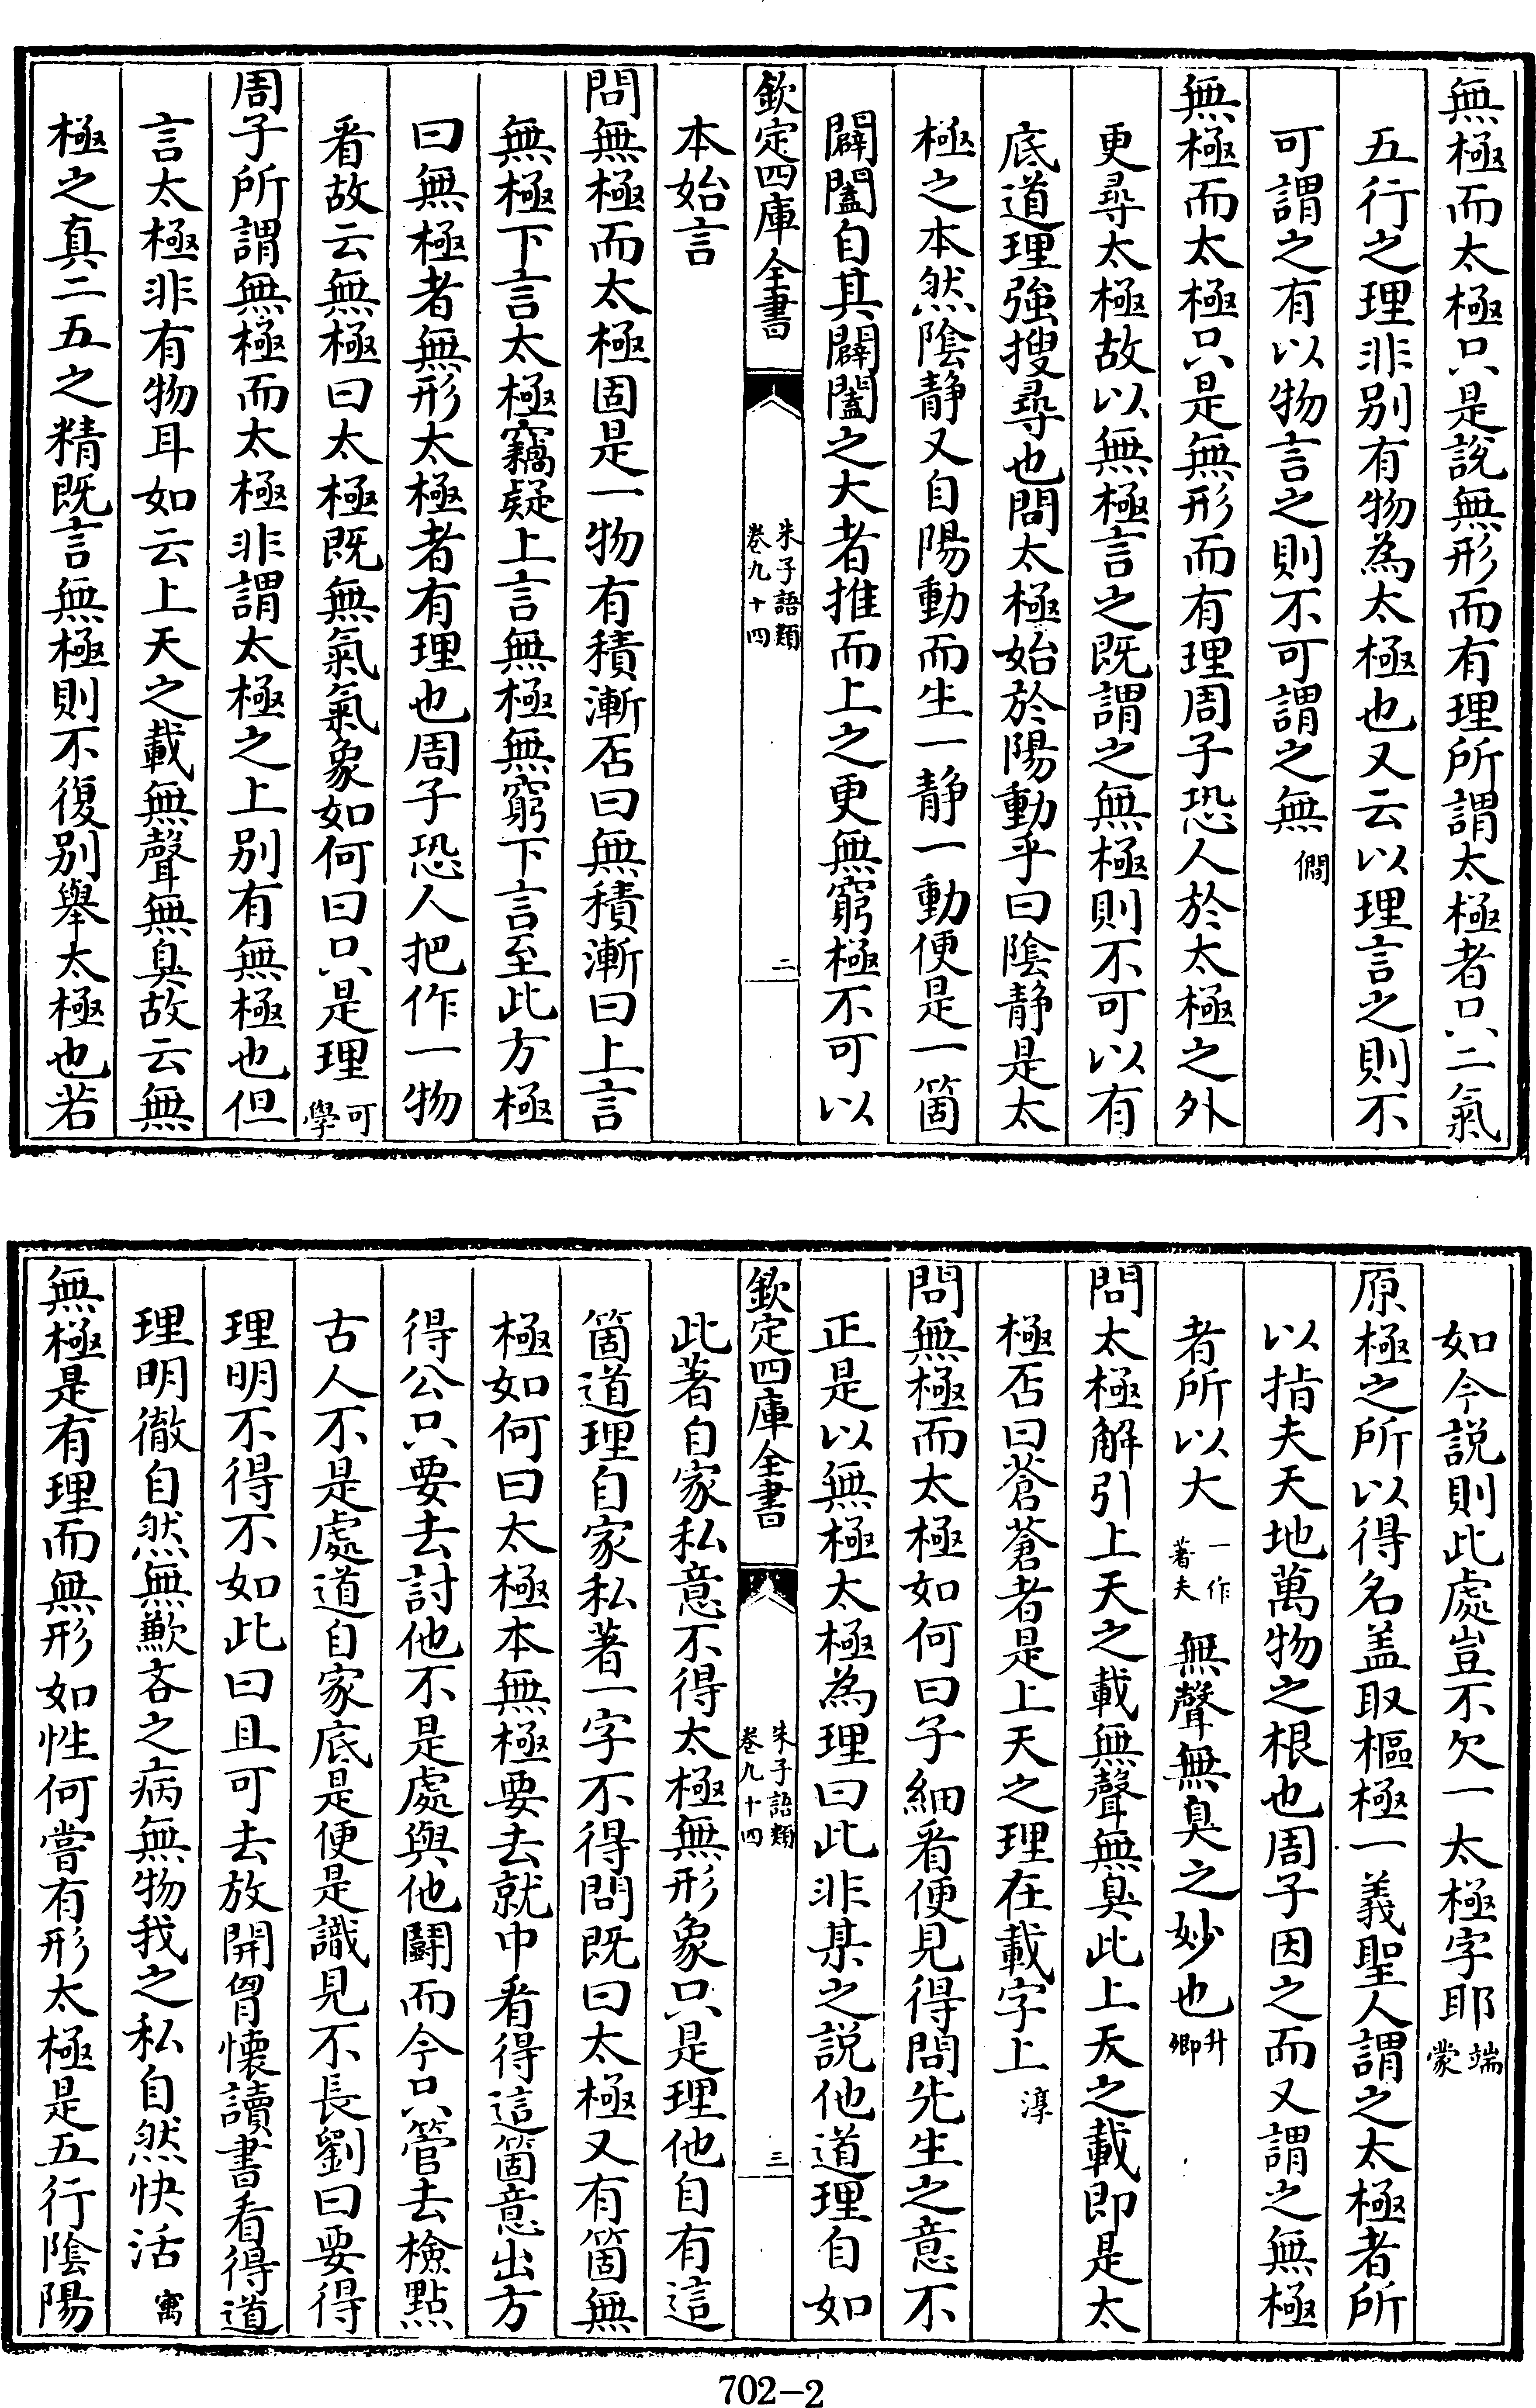 無極而太極只是說無形而有理所謂太極者只二氣
五行之理非别有物為太極也又云以理言之則不
可謂之有以物言之則不可謂之無 僩
無極而太極只是無形而有理周子恐人於太極之外
更尋太極故以無極言之既謂之無極則不可以有
底道理強搜尋也問太極始於陽動乎曰陰静是太
極之本然陰静又自陽動而生一静一動便是一箇
闢闔自其闢闔之大者推而上之更無窮極不可以
欽定四庫全書 朱子語類 卷九十四 二
本始言
問無極而太極固是一物有積漸否曰無積漸曰上言
無極下言太極竊疑上言無極無窮下言至此方極
曰無極者無形太極者有理也周子恐人把作一物
看故云無極曰太極既無氣氣象如何曰只是理 可學
周子所謂無極而太極非謂太極之上别有無極也但
言太極非有物耳如云上天之載無聲無臭故云無
極之真二五之精既言無極則不復别舉太極也若
如今説則此處豈不欠一太極字耶 端蒙
原極之所以得名盖取樞極一義聖人謂之太極者所
以指夫天地萬物之根也周子因之而又謂之無極
者所以大 一作著夫 無聲無臭之妙也 升卿
問太極解引上天之載無聲無臭此上天之載即是太
極否曰蒼蒼者是上天之理在載字上 淳
問無極而太極如何曰子細看便見得問先生之意不
正是以無極太極為理曰此非某之説他道理自如
欽定四庫全書 朱子語類 卷九十四 三
此著自家私意不得太極無形象只是理他自有這
箇道理自家私著一字不得問既曰太極又有箇無
極如何曰太極本無極要去就中看得這箇意出方
得公只要去討他不是處與他鬭而今只管去檢點
古人不是處道自家底是便是識見不長劉曰要得
理明不得不如此曰且可去放開胷懷讀書看得道
理明徹自然無歉吝之病無物我之私自然快活 㝢
無極是有理而無形如性何嘗有形太極是五行陰陽
702-2